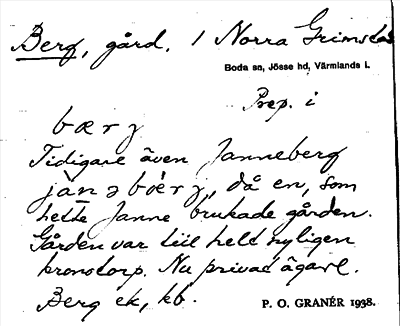 Berg, gård. 1 Norra Grimsta
Boda sn, Jösse hd, Värmlands l.
Prep. i
bærj
Tidigare även Janneberg
jànəbǽrj, då en, som
hette Janne brukade gården.
Gården var till helt nyligen
kronotorp. Nu privat ägare.
Berg ek, kb.
P. O. GRANÉR 1938.